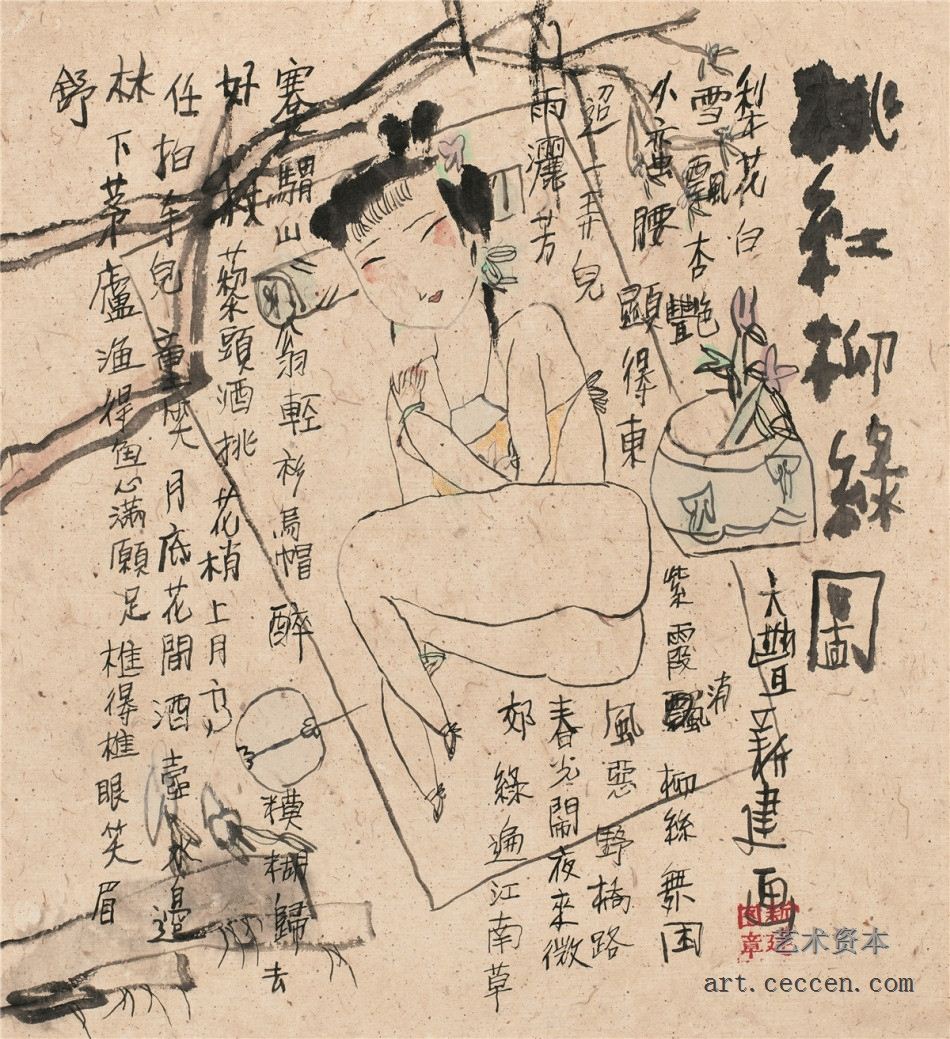 桃紅柳綠圖
大豐新建画
梨花白
雪飄杏艷
紫霞消
柳絲舞困
小蠻腰顯得東
風惡野橋路
迢一弄兒
春光鬧夜來微
雨灑芳
郊綠遍江南草
蹇驢山翁輕衫烏帽醉糢糊歸去
好杖藜頭酒挑花梢上月高
任拍手兒童笑月底花間酒壺水邊
林下茅廬漁得魚心滿願足樵得樵眼笑眉
舒
艺术资本
art.ceccen.com